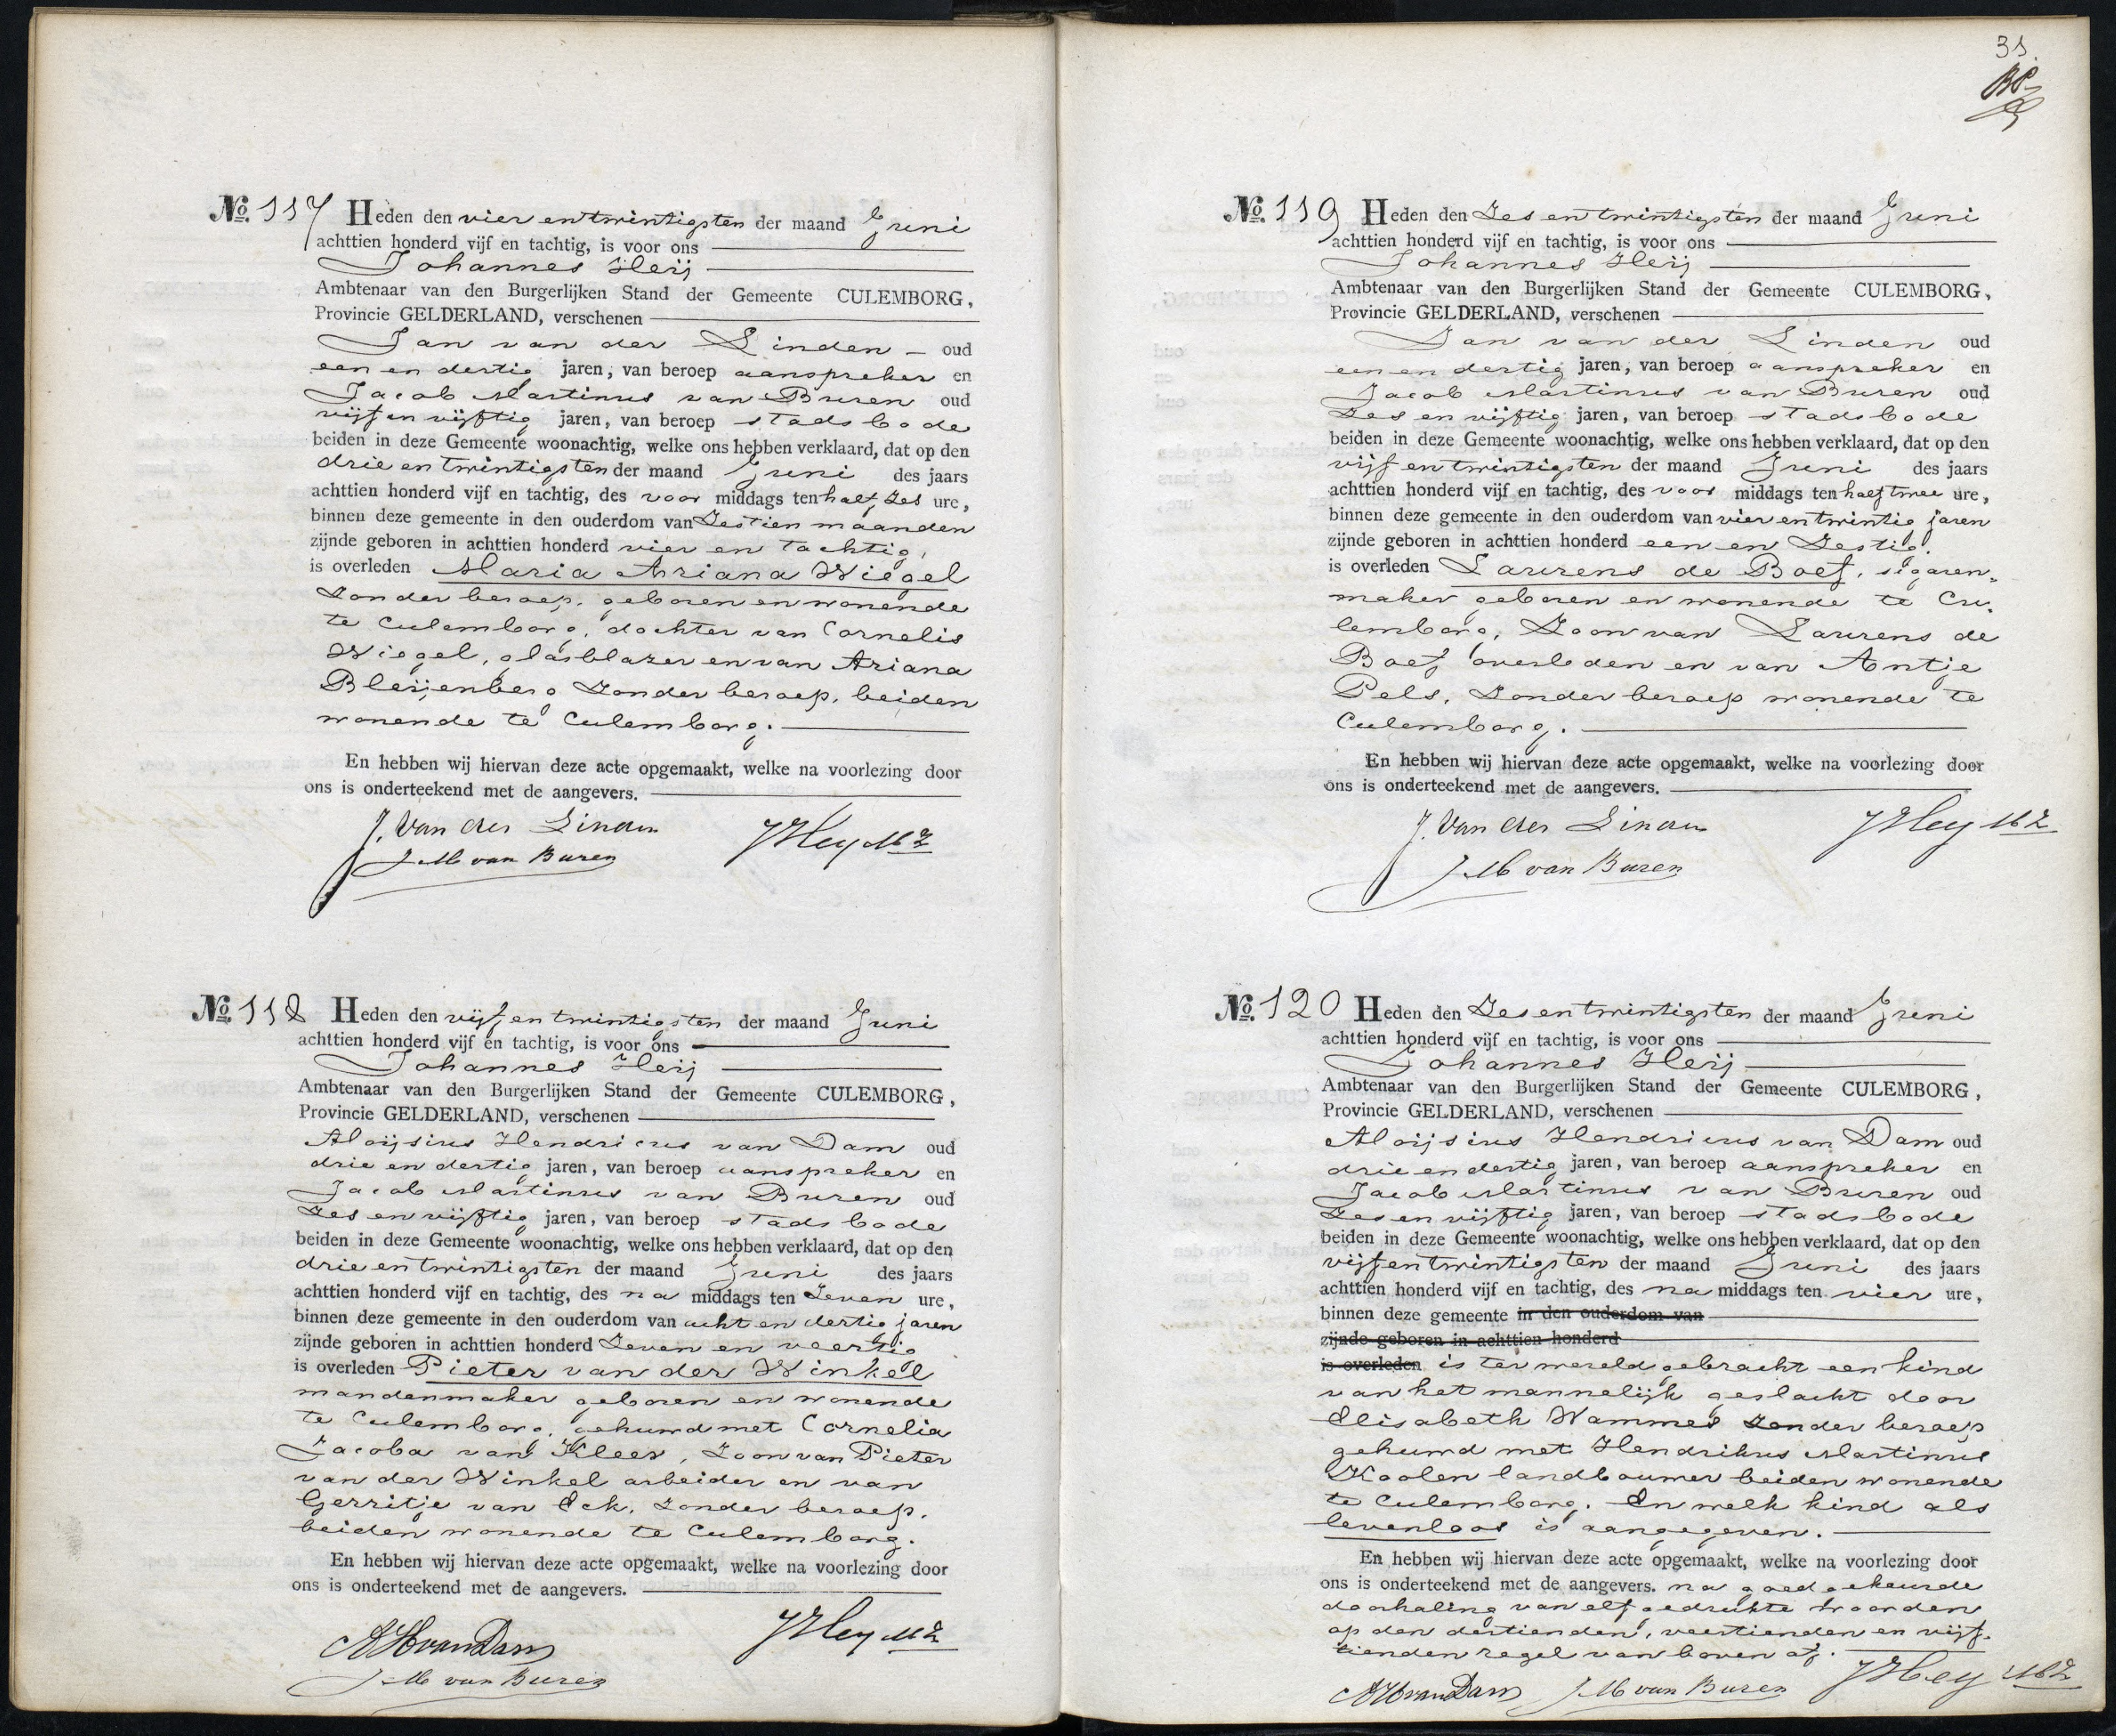 No. 117 Heden den vier en twintigsten der maand Juni
achttien honderd vijf en tachtig, is voor ons
Johannes Heij
Ambtenaar van den Burgerlijken Stand der Gemeente CULEMBORG,
Provincie GELDERLAND, verschenen
Jan van der Linden oud
een en dertig jaren, van beroep aanspreker en
Jacob Martinus van Buren oud
vijf en vijftig jaren, van beroep stadsbode
beiden in deze Gemeente woonachtig, welke ons hebben verklaard, dat op den
drie en twintigsten der maand Juni des jaars
achttien honderd vijf en tachtig, des voor middags ten half zes ure,
binnen deze gemeente in den ouderdom van zestien maanden
zijnde geboren in achttien honderd vier en tachtig,
is overleden Maria Ariana Wiegel
zonder beroep, geboren en wonende
te Culemborg, dochter van Cornelis
Wiegel, glasblazer en van Ariana
Bleijenberg zonder beroep, beiden
wonende te Culemborg.
En hebben wij hiervan deze acte opgemaakt, welke na voorlezing door
ons is onderteekend met de aangevers.
J. van der Linden
J M van Buren
JHey
No. 118 Heden den vijf en twintigsten der maand Juni
achttien honderd vijf en tachtig, is voor ons
Johannes Heij
Ambtenaar van den Burgerlijken Stand der Gemeente CULEMBORG,
Provincie GELDERLAND, verschenen
Aloijsius Hendricus van Dam oud
drie en dertig jaren, van beroep aanspreker en
Jacob Martinus van Buren oud
zes en vijftig jaren, van beroep stadsbode
beiden in deze Gemeente woonachtig, welke ons hebben verklaard, dat op den
drie en twintigsten der maand Juni des jaars
achttien honderd vijf en tachtig, des na middags ten zeven ure,
binnen deze gemeente in den ouderdom van acht en dertig jaren
zijnde geboren in achttien honderd zeven en veertig
is overleden Pieter van der Winkel
mandenmaker geboren en wonende
te Culemborg, gehuwd met Cornelia
Jacoba van Kleef, zoon van Pieter
van der Winkel arbeider en van
Gerritje van Eck, zonder beroep,
beiden wonende te Culemborg.
En hebben wij hiervan deze acte opgemaakt, welke na voorlezing door
ons is onderteekend met de aangevers.
AHvanDam
J M van Buren
JHey
31.
No. 119 Heden den zes en twintigsten der maand Juni
achttien honderd vijf en tachtig, is voor ons
Johannes Heij
Ambtenaar van den Burgerlijken Stand der Gemeente CULEMBORG,
Provincie GELDERLAND, verschenen
Jan van der Linden oud
een en dertig jaren, van beroep aanspreker en
Jacob Martinus van Buren oud
zes en vijftig jaren, van beroep stadsbode
beiden in deze Gemeente woonachtig, welke ons hebben verklaard, dat op den
vijf en twintigsten der maand Juni des jaars
achttien honderd vijf en tachtig, des voor middags ten half twee ure,
binnen deze gemeente in den ouderdom van vier en twintig jaren
zijnde geboren in achttien honderd een en zestig.
is overleden Laurens de Boef, sigaren-
maker geboren en wonende te Cu-
lemborg, zoon van Laurens de
Boef overleden en van Antje
Pels, zonder beroep wonende te
Culemborg.
En hebben wij hiervan deze acte opgemaakt, welke na voorlezing door
ons is onderteekend met de aangevers.
J. van der Linden
J M van Buren
JHey
No. 120 Heden den zes en twintigsten der maand Juni
achttien honderd vijf en tachtig, is voor ons
Johannes Heij
Ambtenaar van den Burgerlijken Stand der Gemeente CULEMBORG,
Provincie GELDERLAND, verschenen
Aloijsius Hendricus van Dam oud
drie en dertig jaren, van beroep aanspreker en
Jacob Martinus van Buren oud
zes en vijftig jaren, van beroep stadsbode
beiden in deze Gemeente woonachtig, welke ons hebben verklaard, dat op den
vijf en twintigsten der maand Juni des jaars
achttien honderd vijf en tachtig, des na middags ten vier ure,
binnen deze gemeente in den ouderdom van
zijnde geboren in achttien honderd
is overleden is ter wereld gebracht een kind
van het mannelijk geslacht door
Elisabeth Wammes zonder beroep
gehuwd met Hendrikus Martinus
Koolen landbouwer beiden wonende
te Culemborg. En welk kind als
levenloos is aangegeven.
En hebben wij hiervan deze acte opgemaakt, welke na voorlezing door
ons is onderteekend met de aangevers. na goedgekeurde
doorhaling van elf gedrukte woorden
op den dertienden, veertienden en vijf-
tienden regel van boven af.
AHvanDam J M van Buren JHey